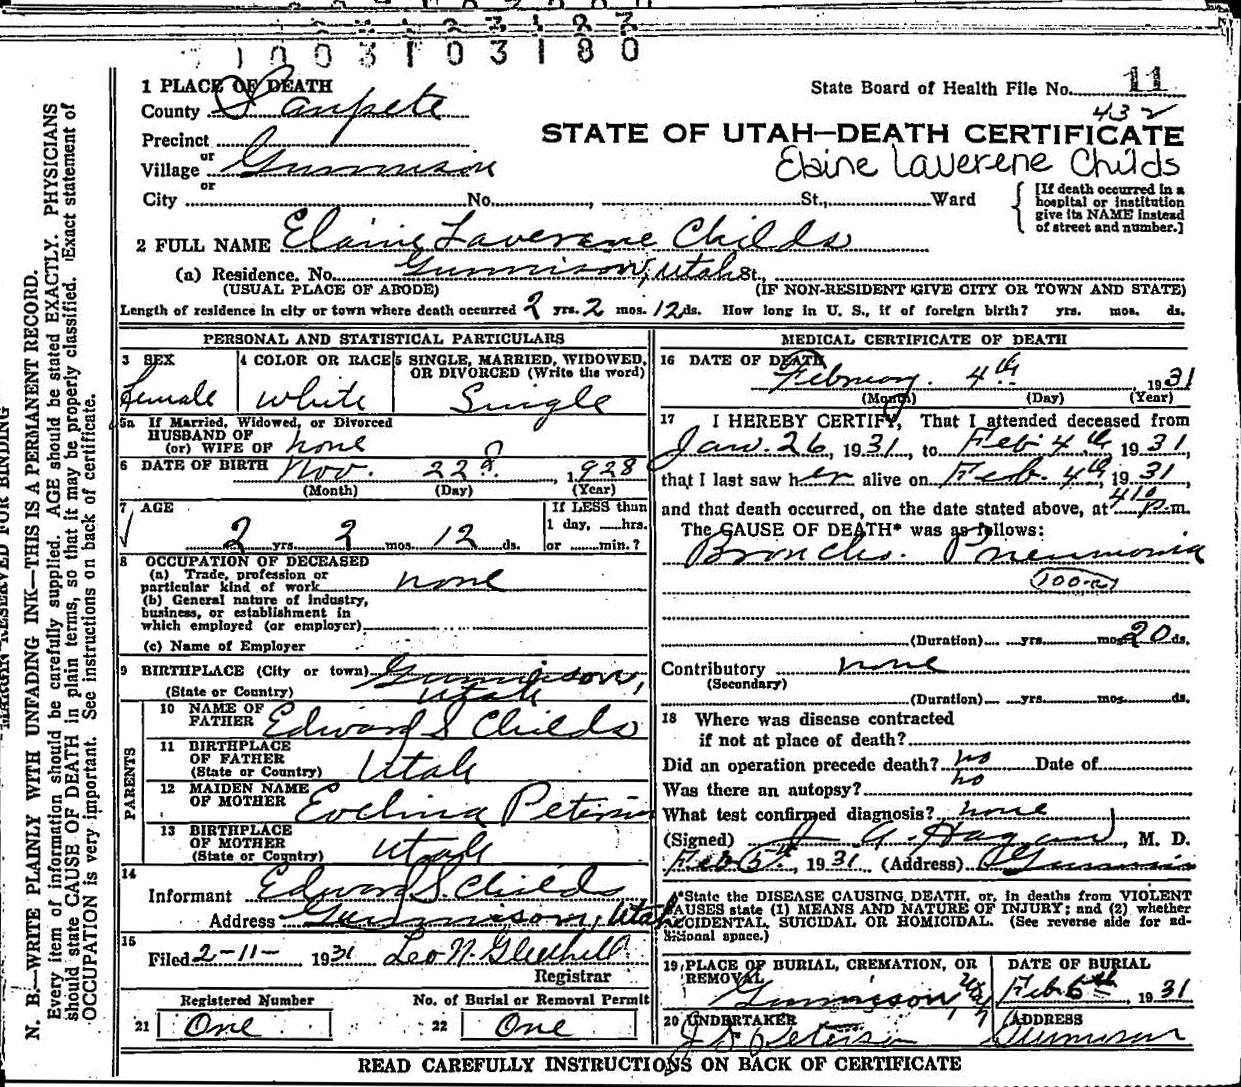 1003103180
1 PLACE OF DEATH
County Sanpete
State Board of Health File No. 11
432
Precinct
or
Village Gunnison
or
City No. , St., Ward
STATE OF UTAH—DEATH CERTIFICATE
Elaine Laverene Childs
[If death occurred in a
hospital or institution
give its NAME instead
of street and number.]
2 FULL NAME Elaine Laverene Childs
(a) Residence, No. Gunnison, Utah St.,
(USUAL PLACE OF ABODE) (IF NON-RESIDENT GIVE CITY OR TOWN AND STATE)
Length of residence in city or town where death occurred 2 yrs. 2 mos. 12 ds. How long in U. S., if of foreign birth? yrs. mos. ds.
PERSONAL AND STATISTICAL PARTICULARS
3 SEX
Female
4 COLOR OR RACE
White
5 SINGLE, MARRIED, WIDOWED,
OR DIVORCED (Write the word)
Single
5a If Married, Widowed, or Divorced
HUSBAND OF
(or) WIFE OF none
6 DATE OF BIRTH Nov. 22nd, 1928
(Month) (Day) (Year)
7 AGE
2 yrs. 2 mos. 12 ds.
If LESS than
1 day, hrs.
or min.?
8 OCCUPATION OF DECEASED
(a) Trade, profession or
particular kind of work none
(b) General nature of industry,
business, or establishment in
which employed (or employer)
(c) Name of Employer
9 BIRTHPLACE (City or town) Gunnison,
(State or Country) Utah
PARENTS
10 NAME OF
FATHER Edward S Childs
11 BIRTHPLACE
OF FATHER
(State or Country) Utah
12 MAIDEN NAME
OF MOTHER Evelina Peterson
13 BIRTHPLACE
OF MOTHER
(State or Country) Utah
14
Informant Edward S. Childs
Address Gunnison, Utah
15
Filed 2-11- 1931 Leo N. Gledhill
Registrar
Registered Number
21 One
No. of Burial or Removal Permit
22 One
MEDICAL CERTIFICATE OF DEATH
16 DATE OF DEATH
February 4th, 1931
(Month) (Day) (Year)
17 I HEREBY CERTIFY, That I attended deceased from
Jan. 26, 1931, to Feb. 4th, 1931,
that I last saw her alive on Feb. 4th, 1931
and that death occurred, on the date stated above, at 410 P.m.
The CAUSE OF DEATH* was as follows:
Broncho. Pneumonia
100-a
(Duration) yrs. mos. 20 ds.
Contributory none
(Secondary)
(Duration) yrs. mos. ds.
18 Where was disease contracted
if not at place of death?
Did an operation precede death? no Date of
Was there an autopsy? no
What test confirmed diagnosis? none
(Signed) J. A. Hagan, M. D.
Feb 5th, 1931 (Address) Gunnison
*State the DISEASE CAUSING DEATH, or, in deaths from VIOLENT
CAUSES state (1) MEANS AND NATURE OF INJURY; and (2) whether
ACCIDENTAL, SUICIDAL OR HOMICIDAL. (See reverse side for ad-
ditional space.)
19 PLACE OF BURIAL, CREMATION, OR
REMOVAL
Gunnison, Utah
DATE OF BURIAL
Feb. 6th, 1931
20 UNDERTAKER
J S Peterson
ADDRESS
Gunnison
READ CAREFULLY INSTRUCTIONS ON BACK OF CERTIFICATE
MARGIN RESERVED FOR BINDING
N. B.—WRITE PLAINLY WITH UNFADING INK—THIS IS A PERMANENT RECORD.
Every item of information should be carefully supplied. AGE should be stated EXACTLY. PHYSICIANS
should state CAUSE OF DEATH in plain terms, so that it may be properly classified. Exact statement of
OCCUPATION is very important. See instructions on back of certificate.